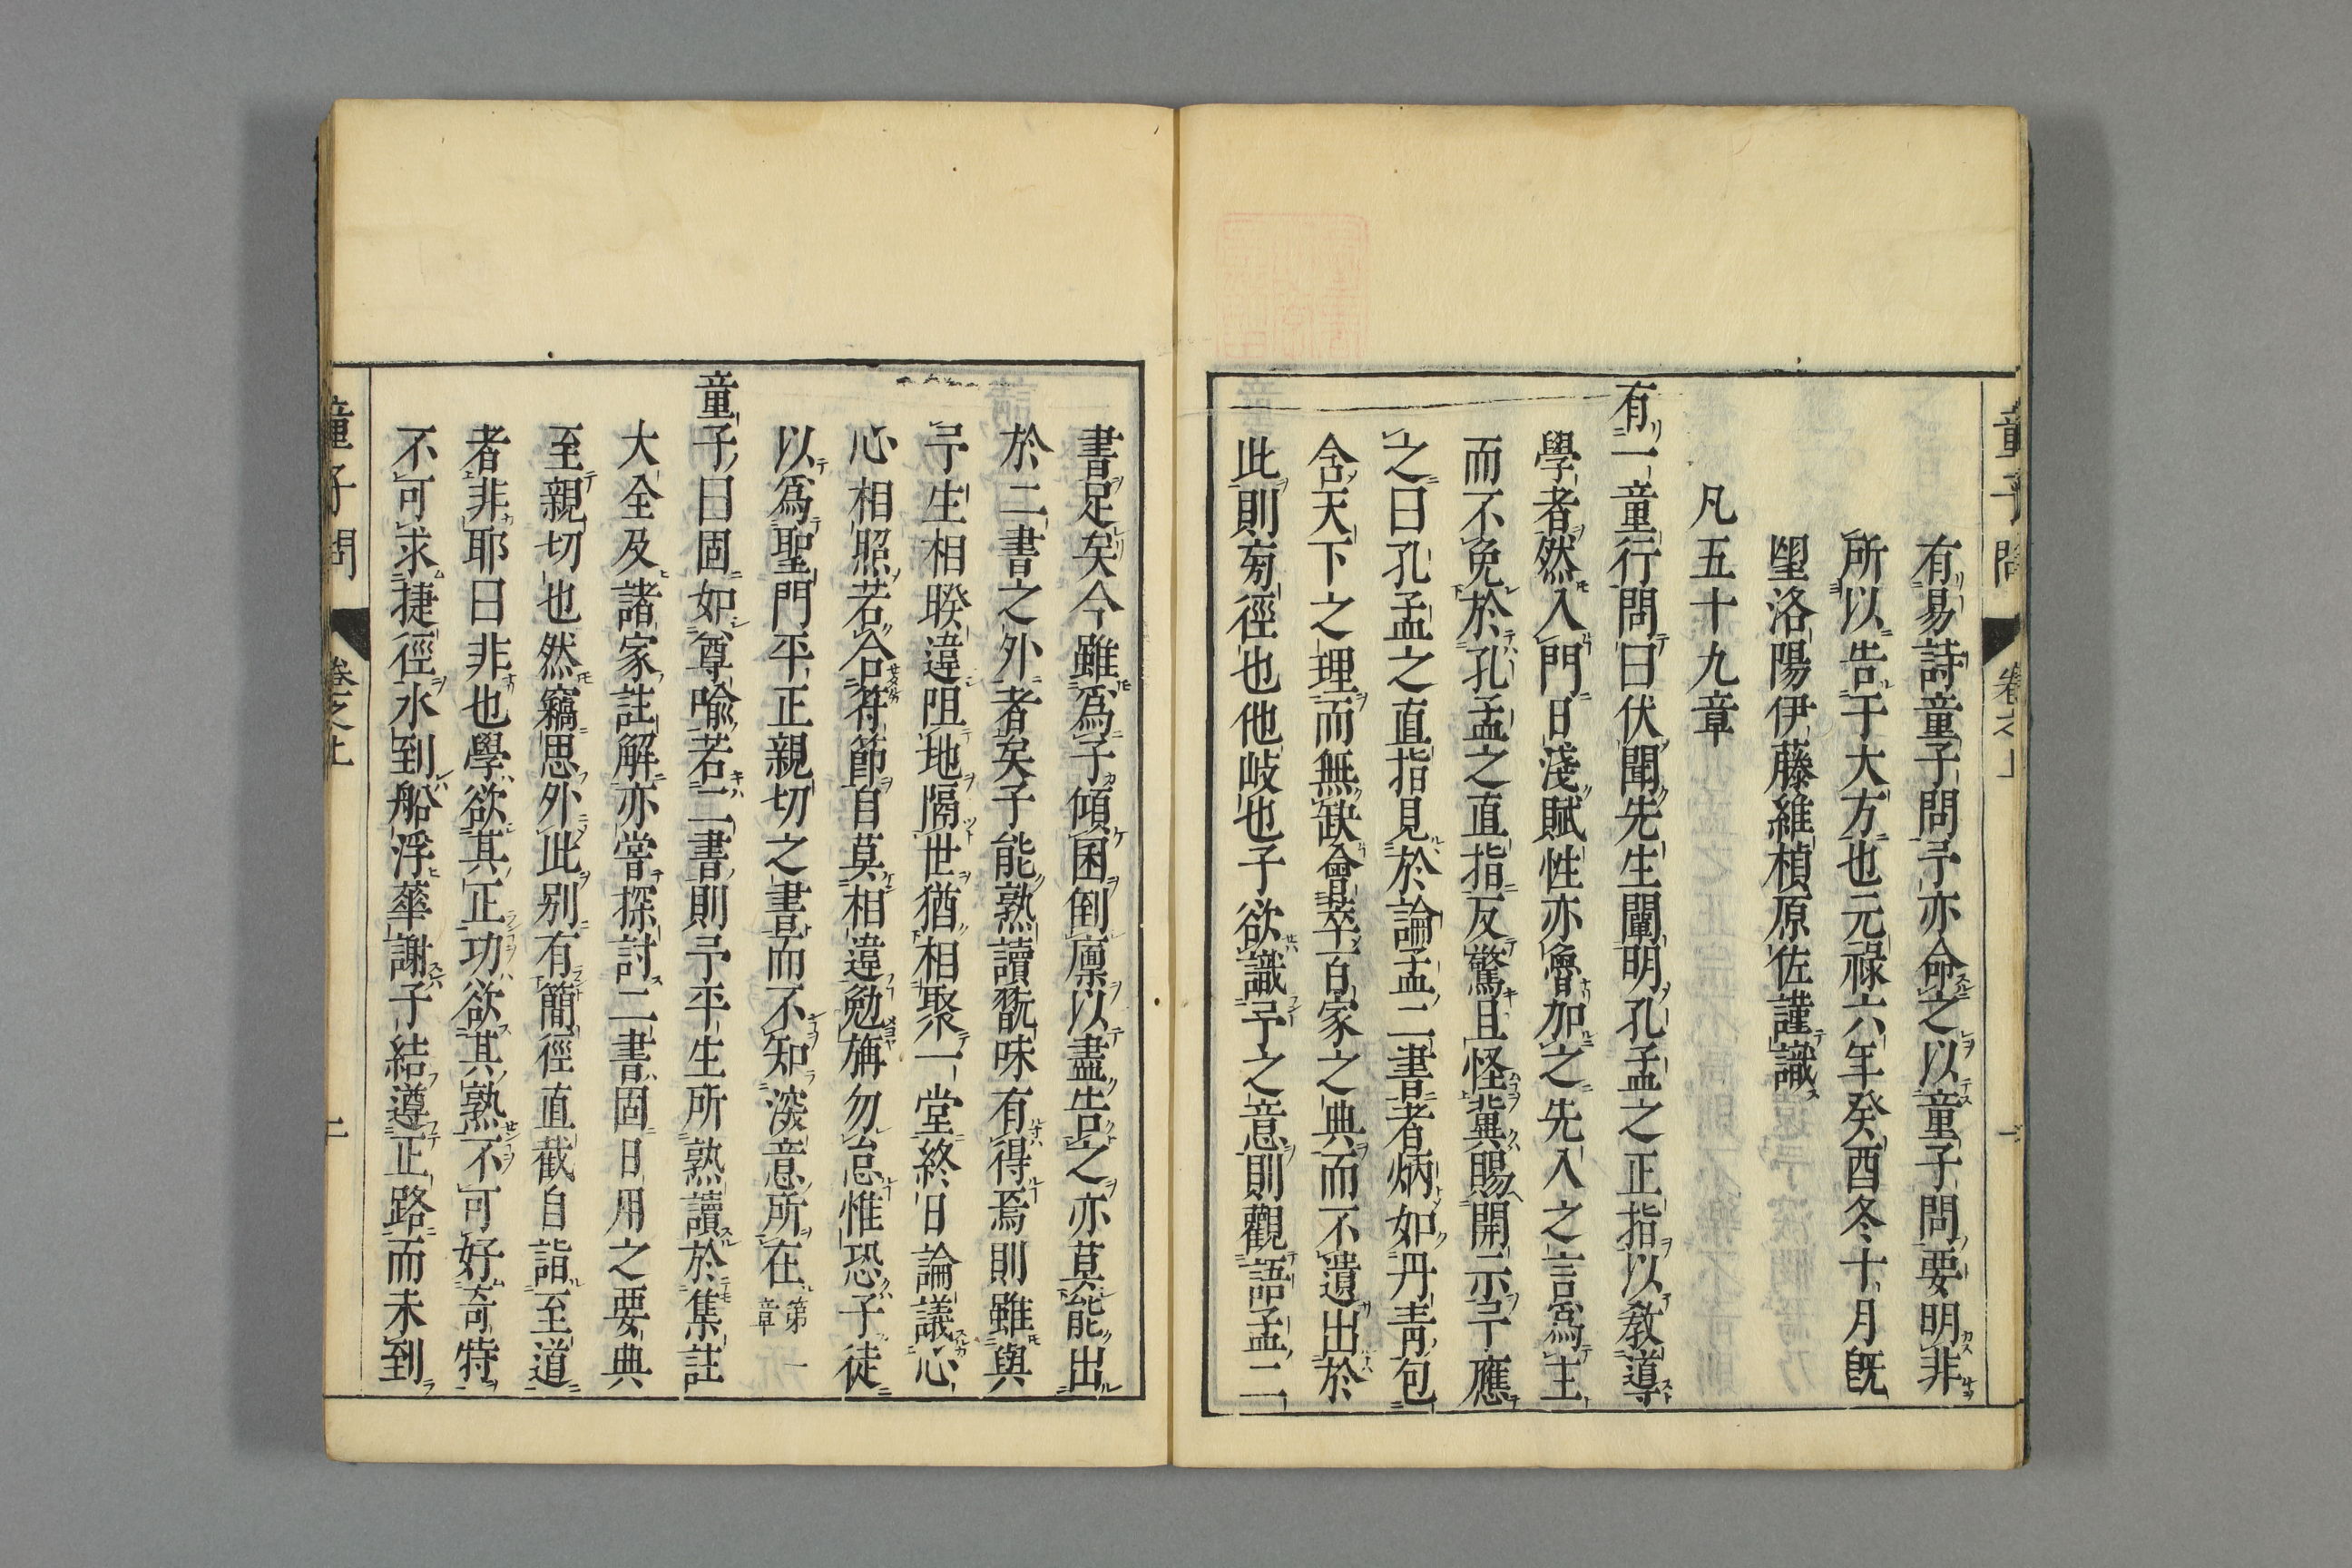 童子問 卷之上
有易詩童子問予亦命之以童子問要明非
所以告于大方也元祿六年癸酉冬十月旣
望洛陽伊藤維楨原佐謹識
凡五十九章
有一童行問曰伏聞先生闡明孔孟之正指以教導
學者然入門日淺賦性亦魯加之先入之言爲主
而不免於孔孟之直指反驚且怪冀賜開示予應
之曰孔孟之直指見於論孟二書者炳如丹靑包
含天下之理而無缺會萃百家之典而不遺出於
此則旁徑也他岐也子欲識予之意則觀語孟二
書足矣今雖爲子傾囷倒廩以盡告之亦莫能出
於二書之外者矣子能熟讀翫味有得焉則雖與
予生相暌違阻地隔世猶相聚一堂終日論議心
心相照若合符節自莫相違勉旃勿怠惟恐子徒
以爲聖門平正親切之書而不知深意所在 第一章
童子曰固如尊喩若二書則予平生所熟讀於集註
大全及諸家註解亦嘗探討二書固日用之要典
至親切也然竊思外此别有簡徑直截自詣至道
者非耶曰非也學欲其正功欲其熟不可好奇特
不可求捷徑水到船浮華謝子結遵正路而未到
童子問 卷之上 二